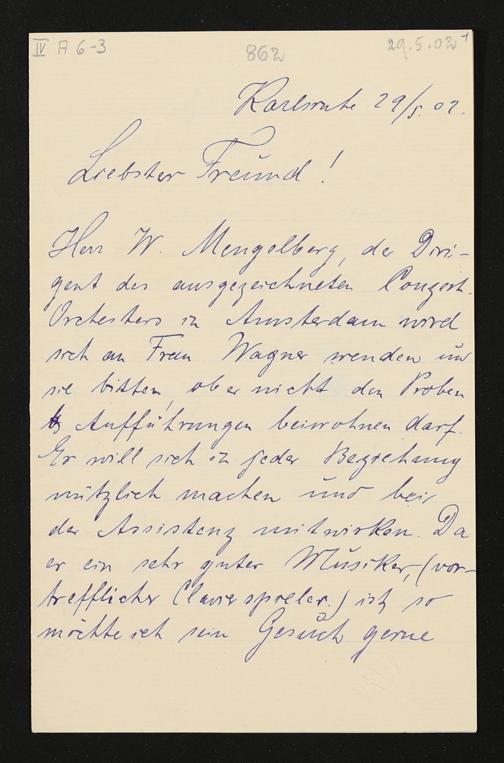 IV A 6-3
862
29.5.02
Karlsruhe 29/5.02.
Liebster Freund!
Herr W. Mengelberg, der Diri-
gent des ausgezeichneten Conzert-
Orchesters in Amsterdam wird
sich an Frau Wagner wenden und
sie bitten, ob er nicht den Proben
& Aufführungen beiwohnen darf.
Er will sich in jeder Beziehung
nützlich machen und bei
der Assistenz mitwirken. Da
er ein sehr guter Musiker, (vor-
trefflicher Clavierspieler.) ist, so
möchte ich sein Gesuch gerne